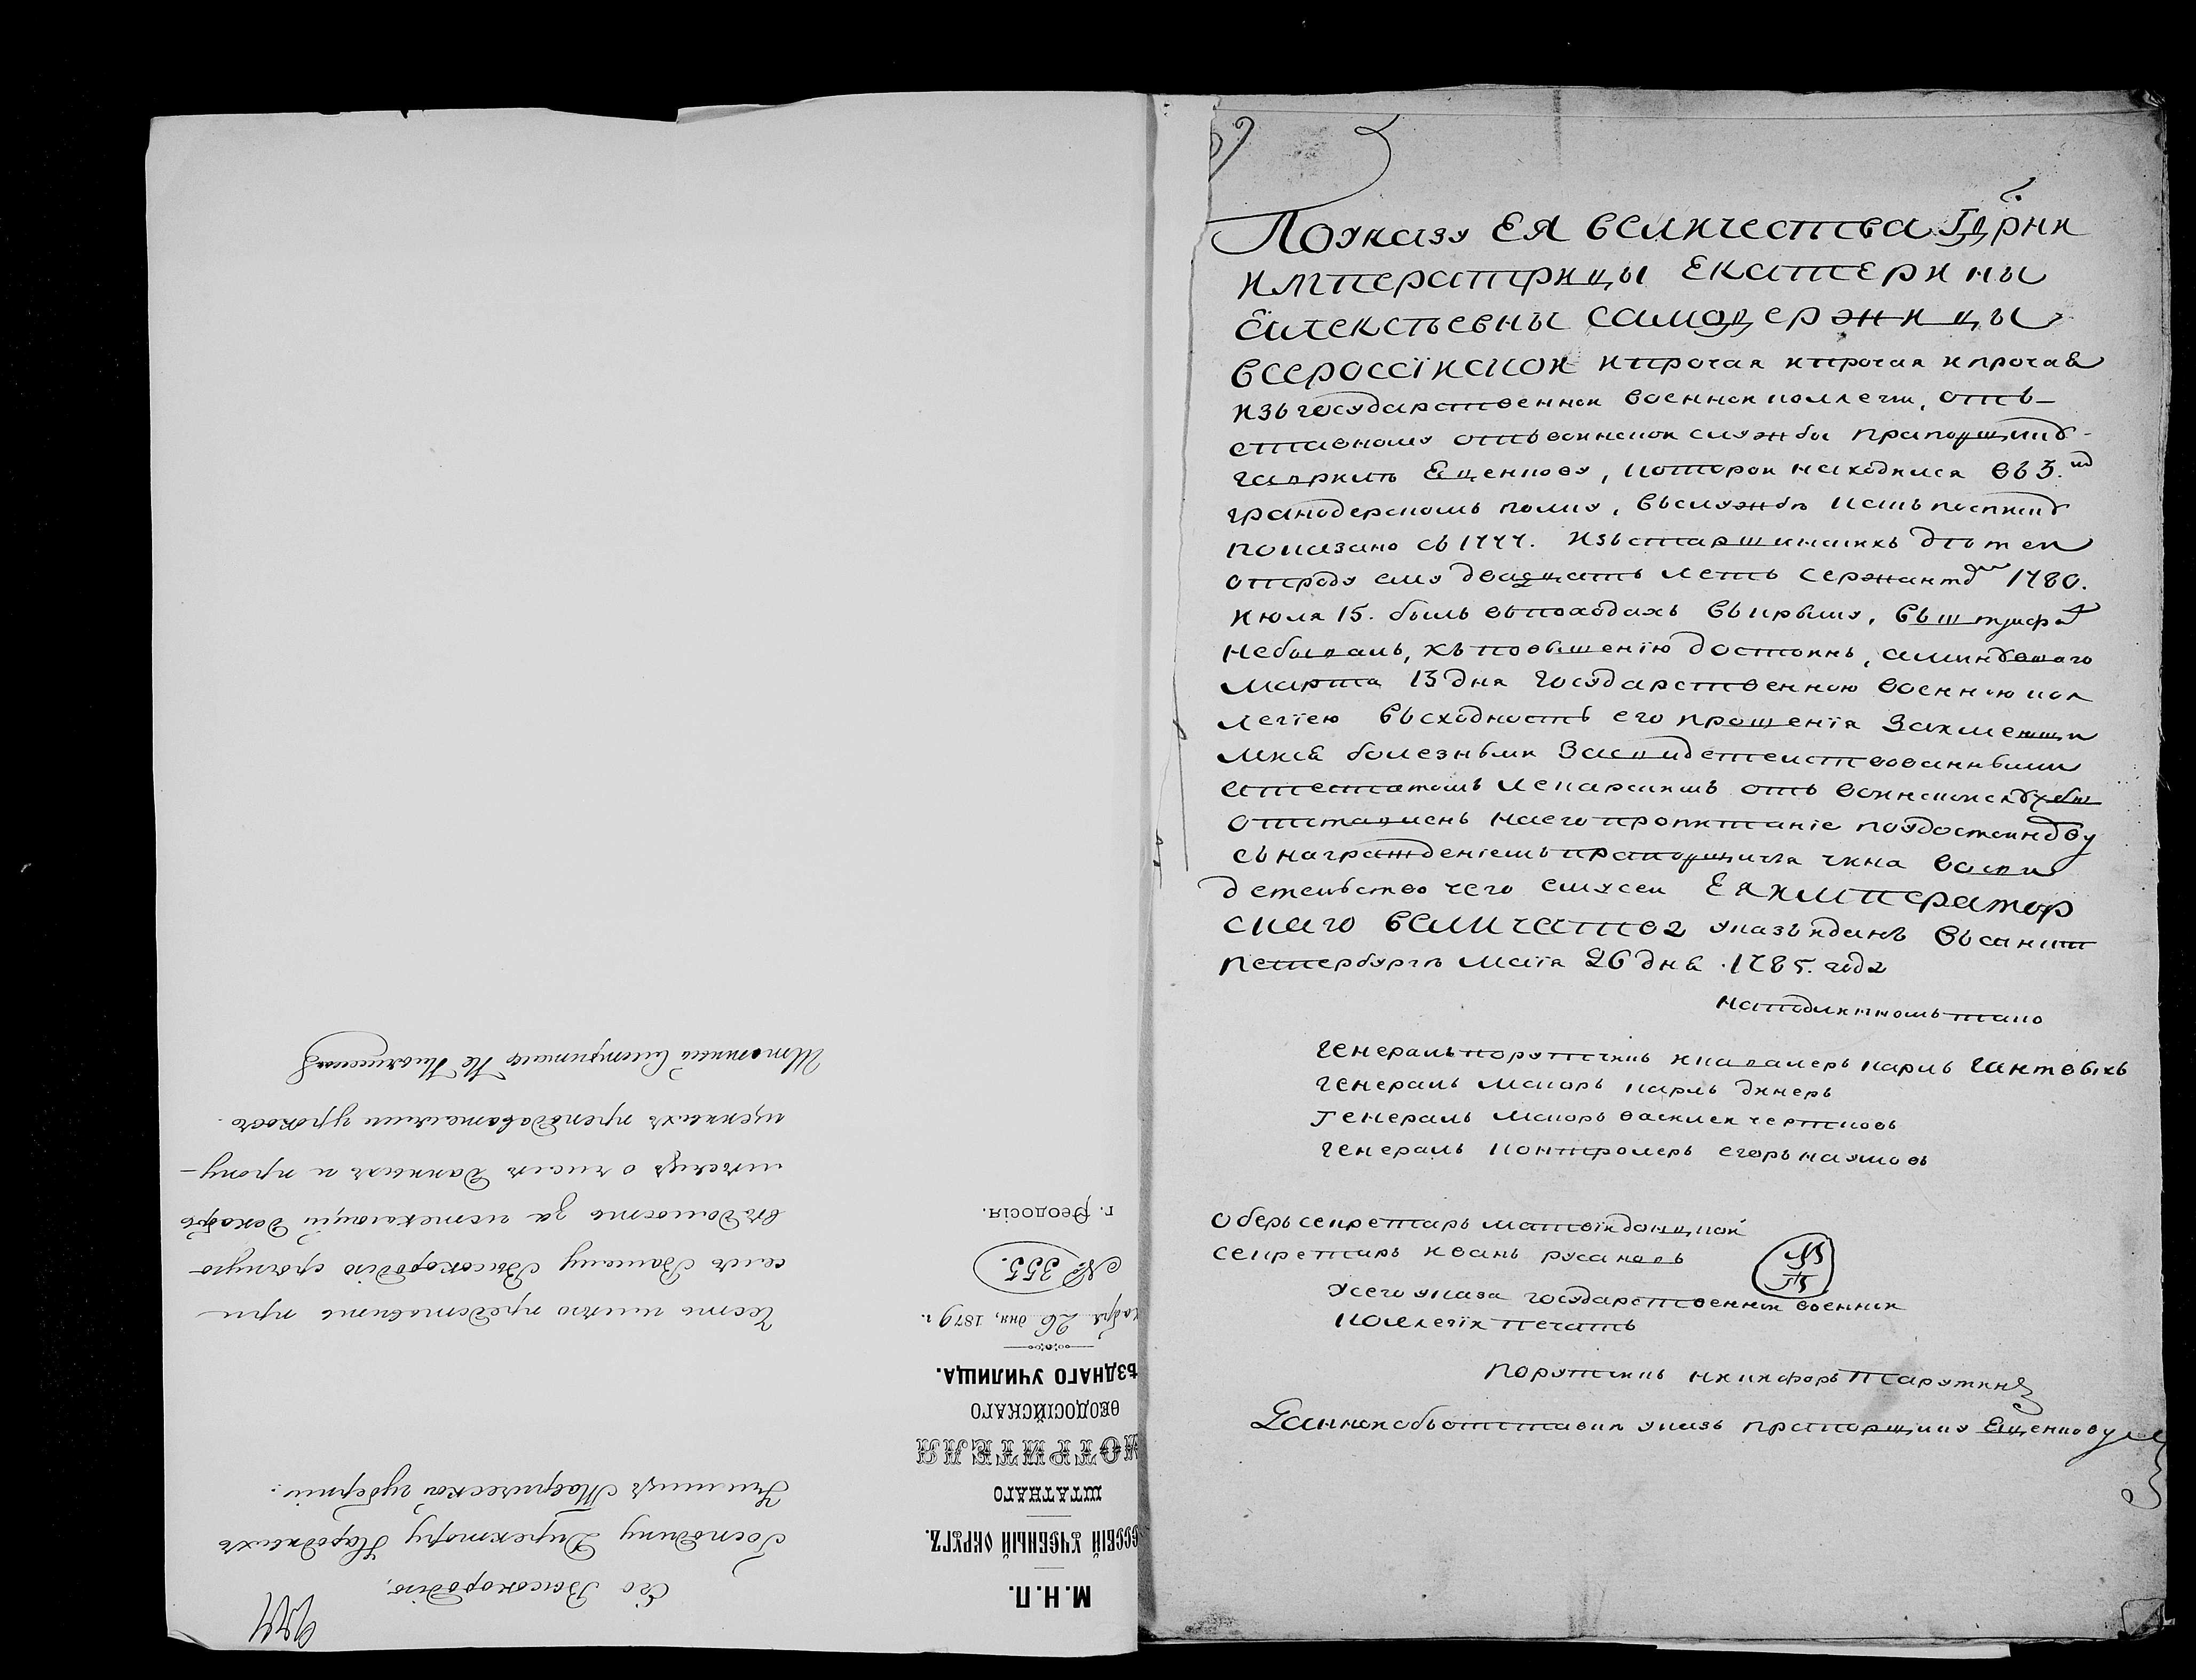 М. Н. П.
ССКІЙ УЧЕБНЫЙ ОКРУГЪ.
ШТАТНАГО
ОТРИТЕЛЯ
ѲЕОДОСІЙСКАГО
ѢЗДНАГО УЧИЛИЩА.
кабря 26 дня, 1879 г.
№ 355.
г. Ѳеодосія.
Его Высокородію,
Господину Директору Народныхъ
Училищъ Таврической губерніи.
Честь имѣю представить при
семъ Вашему Высокородію срочную
вѣдомость за истекающій декабрь
мѣсяцъ о числѣ данныхъ и пропу-
щенныхъ преподавателями уроковъ.
Штатный Смотритель
По указу ЕЯ величества Гдрни
императрицы Екатерины
Алексъевны самодержицы
всероссїиской ипрочая ипрочая ипрочая
изъ государственной военной коллегіи, отъ-
ставному отъ воинской службы прапорщику
гаврилѣ Ещенкову, которой находился въ 3.
гранодерскомъ полку, въслужбѣ
показано съ 1777. изъ старшинскихъ дѣтей
отроду ему двадцать летъ сержантомъ 1780.
июля 15. былъ въпоходахъ въкрыму, въштрафѣ
небывалъ, къповышенїю достоинъ, аминувшаго
марта 13 дня государственною военною кол
легїею въсходность его прошенїя заимеющи
мися болезньми засвидетельствованными
аттестатомъ лекарскимъ отъ воинской службы
отставленъ наего пропитанїе
снагражденїемъ прапорщичья чина восви
детельство чего емусеи ЕЯ император
скаго величества указъ иданъ въсанкт
петербургѣ маїя 26 дня 1785. года
наподлинномъ тако
генералъ порутчикъ икавалеръ карлъ гантвихъ
генералъ маиоръ карлъ динеръ
генералъ маиоръ василеи чертковъ
генералъ контролеръ егоръ наумовъ
оберъ секретарь
секретарь иванъ русановъ
МП
усего указа государственной военной
коллегїи печать
порутчикъ никифоръ Тарутинъ
Данной объотставки указъ прапорщику Ещенкову